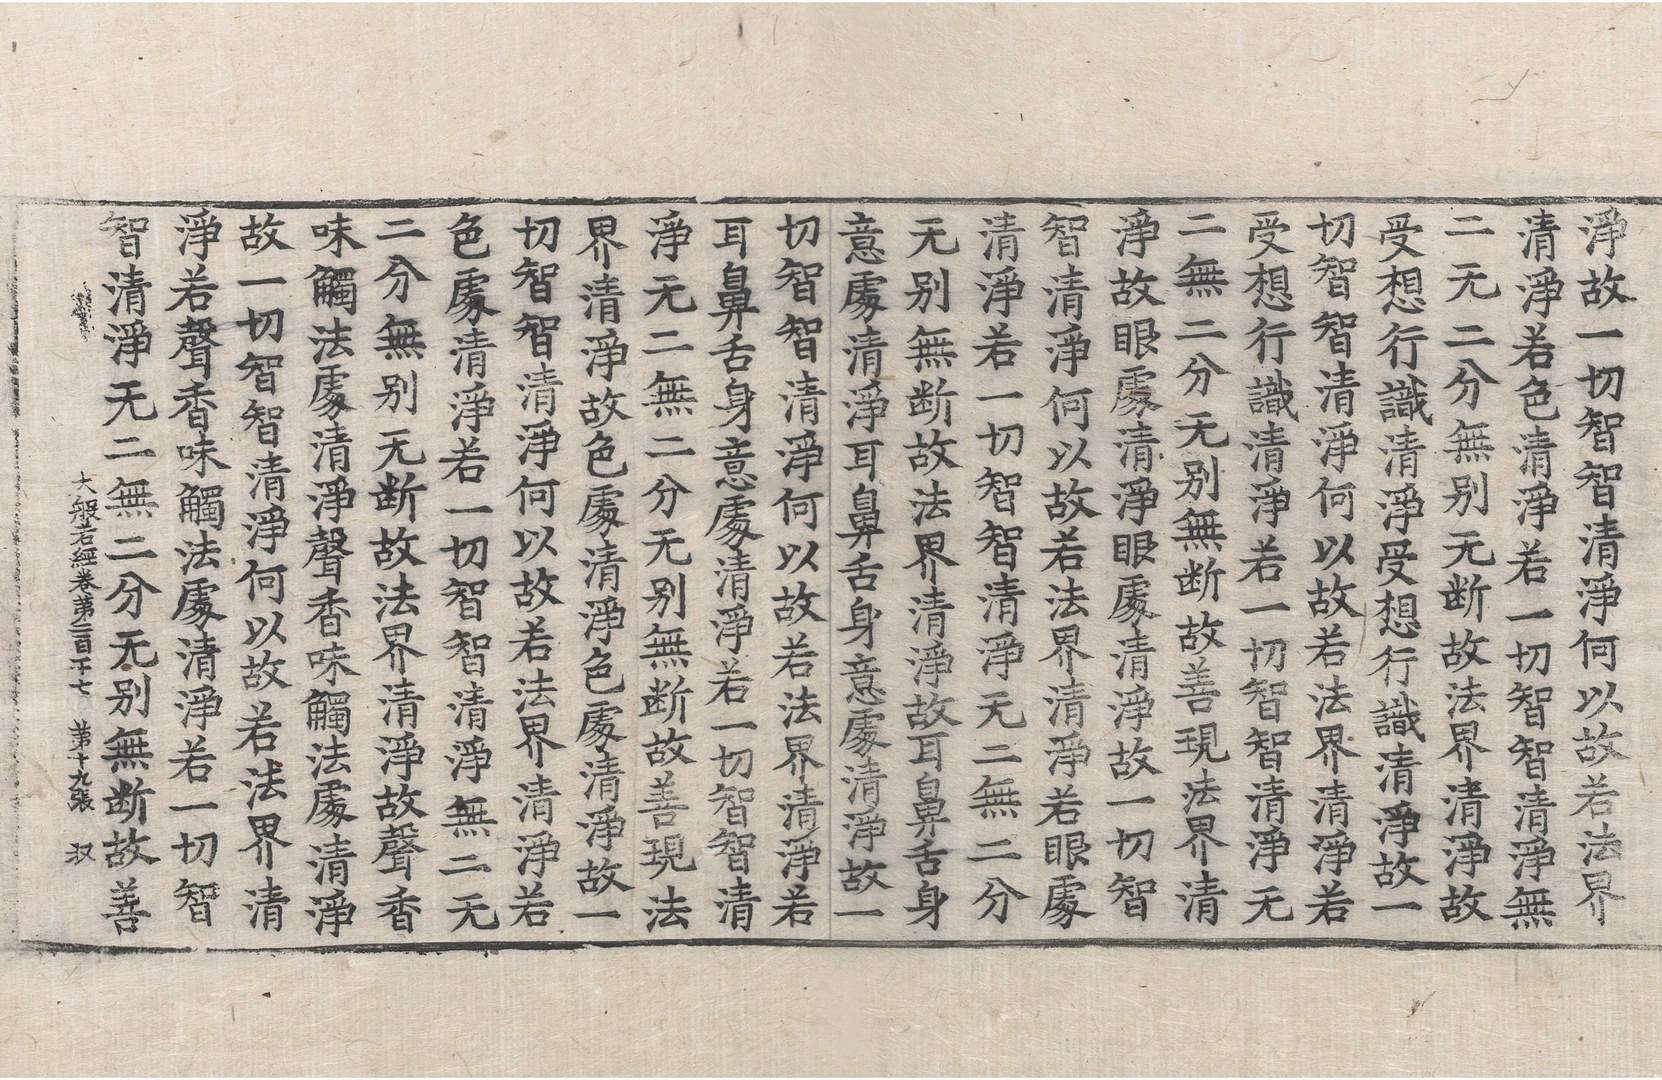 淨故一切智智清淨何以故若法界
清淨若色清淨若一切智智清淨無
二无二分無别无断故法界清淨故
受想行識清淨受想行識清淨故一
切智智清淨何以故若法界清淨若
受想行識清淨若一切智智清淨无
二無二分无别無断故善現法界清
淨故眼處清淨眼處清淨故一切智
智清淨何以故若法界清淨若眼處
清淨若一切智智清淨无二無二分
无别無断故法界清淨故耳鼻舌身
意處清淨耳鼻舌身意處清淨故一
切智智清淨何以故若法界清淨若
耳鼻舌身意處清淨若一切智智清
淨无二無二分无别無断故善現法
界清淨故色處清淨色處清淨故一
切智智清淨何以故若法界清淨若
色處清淨若一切智智清淨無二无
二分無别无断故法界清淨故聲香
味觸法處清淨聲香味觸法處清淨
故一切智智清淨何以故若法界清
淨若聲香味觸法處清淨若一切智
智清淨无二無二分无别無断故善
大般若經卷第二百七 第十九張